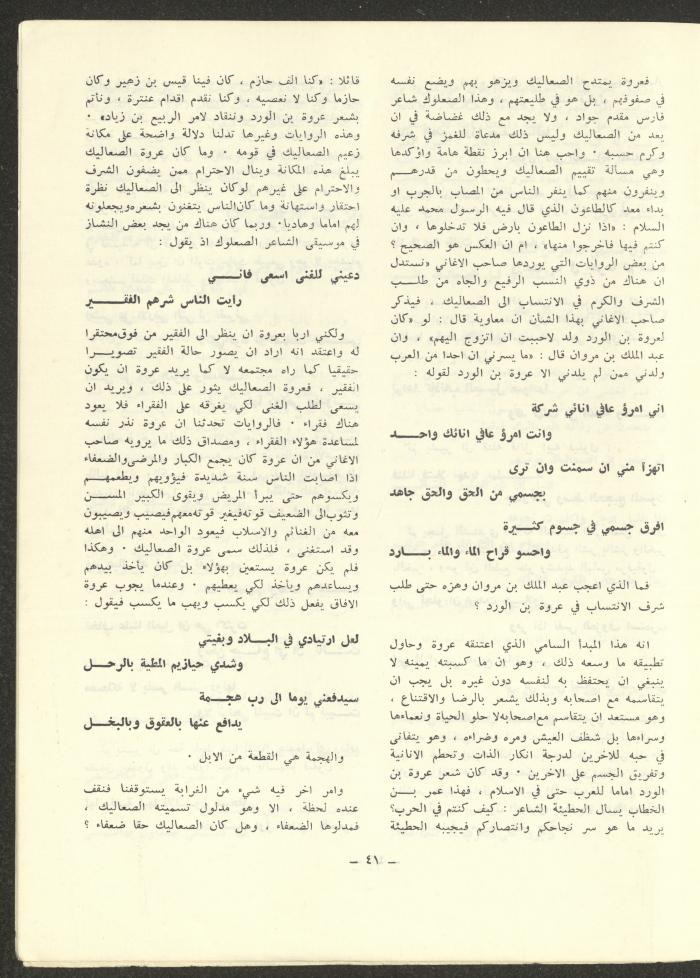 فعروة يمتدح الصعاليك ويزهو بهم ويضع نفسه
في صفوفهم ، بل هو في طليعتهم ، وهذا الصعلوك شاعر
فارس مقدم جواد ، ولا يجد مع ذلك غضاضة في ان
يعد من الصعاليك وليس ذلك مدعاة للغمز في شرفه
وكرم حسبه ٠ واحب هنا ان ابرز نقطة هامة واؤكدها
وهي مسألة تقييم الصعاليك ويحطون من قدرهـــم
وينفرون منهم كما ينفر الناس من المصاب بالجرب او
بداء معد كالطاعون الذي قال فيه الرسول محمد عليه
السلام : «اذا نزل الطاعون بارض فلا تدخلوها ، وان
كنتم فيها فاخرجوا منها» ، ام ان العكس هو الصحيح ؟
من بعض الروايات التي يوردها صاحب الاغاني «نستدل
ان هناك من ذوي النسب الرفيع والجاه من طلـــب
الشرف والكرم في الانتساب الى الصعاليك ، فيذكر
صاحب الاغاني بهذا الشأن ان معاوية قال : لو «كان
لعروة بن الورد ولد لاحببت ان اتزوج اليهم» ، وان
عبد الملك بن مروان قال : «ما يسرني ان احدا من العرب
ولدني ممن لم يلدني الا عروة بن الورد لقوله :
اني امرؤ عافي انائي شركة
وانت امرؤ عافي انائك واحـــد
اتهزأ مني ان سمنت وان ترى
بجسمي من الحق والحق جاهد
افرق جسمي في جسوم كثـــيرة
واحسو قراح الماء والماء بـــارد
فما الذي اعجب عبد الملك بن مروان وهزه حتى طلب
شرف الانتساب في عروة بن الورد ؟
انه هذا المبدأ السامي الذي اعتنقه عروة وحاول
تطبيقه ما وسعه ذلك ، وهو ان ما كسبته يمينه لا
ينبغي ان يحتفظ به لنفسه دون غيره بل يجب ان
يتقاسمه مع اصحابه وبذلك يشعر بالرضا والاقتناع ،
وهو مستعد ان يتقاسم مع اصحابه لا حلو الحياة ونعماءها
وسراءها بل شظف العيش ومره وضراءه ، وهو يتفانى
في حبه للآخرين لدرجة انكار الذات وتحطم الانانية
وتفريق الجسم على الآخرين ٠ وقد كان شعر عروة بن
الورد اماما للعرب حتى في الاسلام ، فهذا عمر بـــن
الخطاب يسأل الحطيئة الشاعر : كيف كنتم في الحرب؟
يريد ما هو سر نجاحكم وانتصاركم فيجيبه الحطيئة
قائلا : «كنا الف حازم ، كان فينا قيس بن زهير وكان
حازما وكنا لا نعصيه ، وكنا نقدم اقدام عنترة ، ونأتم
بشعر عروة بن الورد وننقاد لامر الربيع بن زياد» ٠
وهذه الروايات وغيرها تدلنا دلالة واضحة على مكانة
زعيم الصعاليك في قومه ٠ وما كان عروة الصعاليك
يبلغ هذه المكانة وينال الاحترام ممن يضفون الشرف
والاحترام على غيرهم لو كان ينظر الى الصعاليك نظرة
احتقار واستهانة وما كان الناس يتغنون بشعره ويجعلونه
لهم اماما وهاديا٠ وربما كان هناك من يجد بعض النشاز
في موسيقى الشاعر الصعلوك اذ يقول :
دعيني للغنى اسعى فانـــي
رأيت الناس شرهم الفقـــير
ولكني اربأ بعروة ان ينظر الى الفقير من فوق محتقرا
له واعتقد انه اراد ان يصور حالة الفقير تصويـــرا
حقيقيا كما رآه مجتمعه لا كما يريد عروة ان يكون
الفقير ، فعروة الصعاليك يثور على ذلك ، ويريد ان
يسعى لطلب الغنى لكي يغرقه على الفقراء فلا يعود
هناك فقراء ٠ فالروايات تحدثنا ان عروة نذر نفسه
لمساعدة هؤلاء الفقراء ، ومصداق ذلك ما يرويه صاحب
الاغاني من ان عروة كان يجمع الكبار والمرضى والضعفاء
اذا اصابت الناس سنة شديدة فيؤويهم ويطعمهـــم
ويكسوهم حتى يبرأ المريض ويقوى الكبير المســـن
وتثوب الى الضعيف قوته فيغير قوته معهم فيصيب ويصيبون
معه من الغنائم والاسلاب فيعود الواحد منهم الى اهله
وقد استغنى ، فلذلك سمى عروة الصعاليك ٠ وهكذا
فلم يكن عروة يستعين بهؤلاء بل كان يأخذ بيدهم
ويساعدهم ويأخذ لكي يعطيهم ٠ وعندما يجوب عروة
الآفاق يفعل ذلك لكي يكسب ويهب ما يكسب فيقول :
لعل ارتيادي في البـــلاد وبغيتي
وشدي حيازيم المطية بالرحـــل
سيدفعني يوما الى رب هجـــمة
يدافع عنها بالعقوق وبالبخـــل
والهجمة هي القطعة من الابل ٠
وامر آخر فيه شيء من الغرابة يستوقفنا فنقف
عنده لحظة ، الا وهو مدلول تسميته الصعاليك ،
فمدلولها الضعفاء ، وهل كان الصعاليك حقا ضعفاء ؟
ـ ٤١ ـ